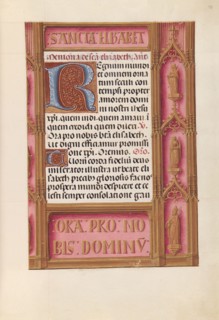 SANCTA ELISABET
Memoria de sca elizabeth. añ.
Regnum mundi
et omnem orna
tum seculi con
tempsi propter
amorem domi
ni nostri ihesu
xpi. quem vidi quem amavi i
quem credidi quem dilexi. V.
Ora pro nobis bta elisabeth.
Ut digni efficiamur promissi
one xpi. Oremus.
corda fideliū deus
miserator illustra ut beate eli
sabeth precib9 gloriosis fac nos
prospera mundi despicere et ce
lesti semper consolation gau
ORA PRO NO
BIS DOMINV̄